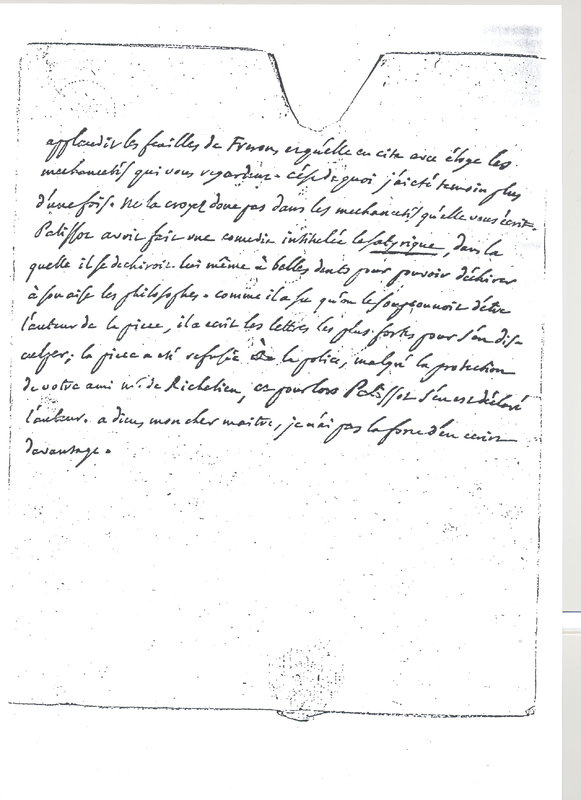 applaudir les feuilles de Freron, et qu'elle en cite avec éloge les
mechancetés qui vous regardent. c'est de quoi j'ai eté temoin plus
d'une fois. ne la croyez donc pas dans les mechancetés qu'elle vous ecrit.
Palissot avoit fait une comedie intitulée le satyrique, dans la
quelle il se dechiroit lui même à belles dents pour pouvoir déchirer
à son aise les philosophes. comme il a su qu'on le soupçonnoit d'être
l'auteur de la piece, il a ecrit les lettres les plus fortes pour s'en dis-
culper; la piece a eté refusée à la police, malgré la protection
de votre ami mr. de Richelieu, et pour lors Palissot s'en est déclaré
l'auteur. adieu, mon cher maitre, je n'ai pas la force d'en ecrire
davantage.